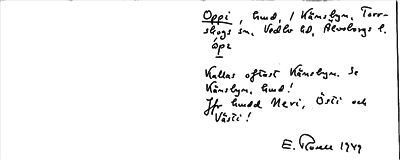 Oppi, hmd, i Kämsbyn, Torr-
skogs sn, Vedbo hd, Älvsborgs l.
òpı
Kallas oftast Kämsbyn. Se
Kämsbyn, hmd!
Jfr hmdd Neri, Östi och
Västi!
E. Rosell 1949